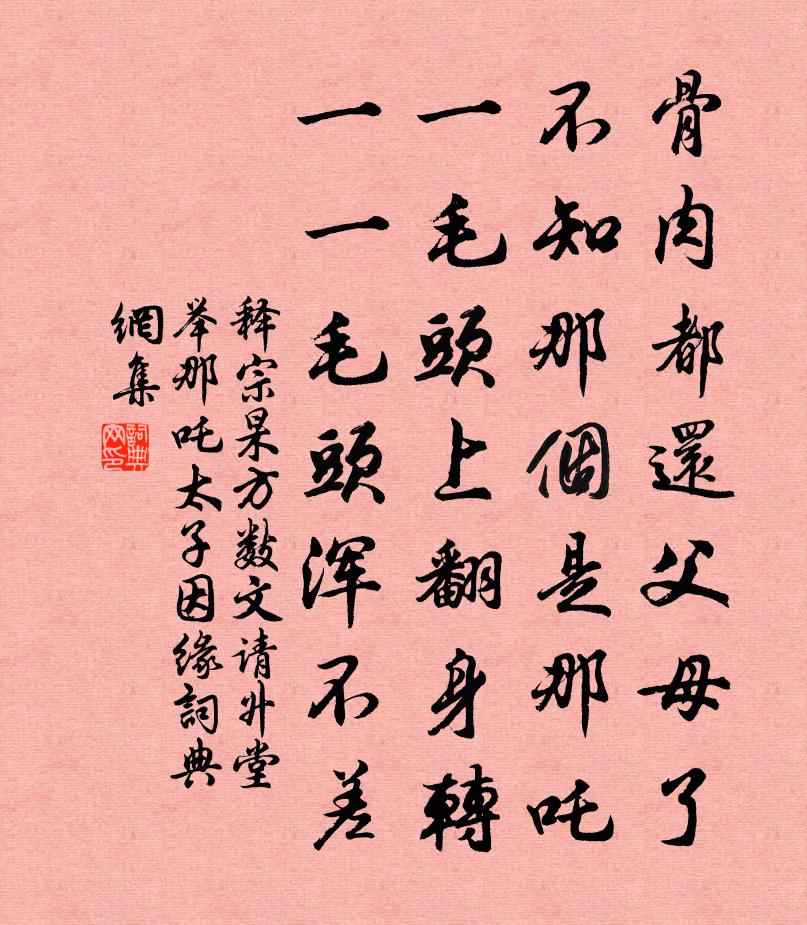 骨肉都還父母了
不知那個是那吒
一毛頭上翻身轉
一一毛頭浑不差
释宗杲方敷文请升堂
举那吒太子因缘詞典
網集
詞典
网印